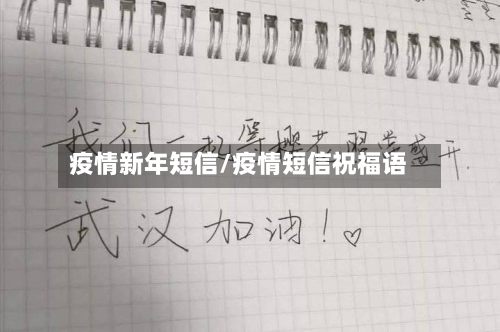 我们一起等樱花
盛开.
疫情新年短信/疫情短信祝福语
武汉加油!♡